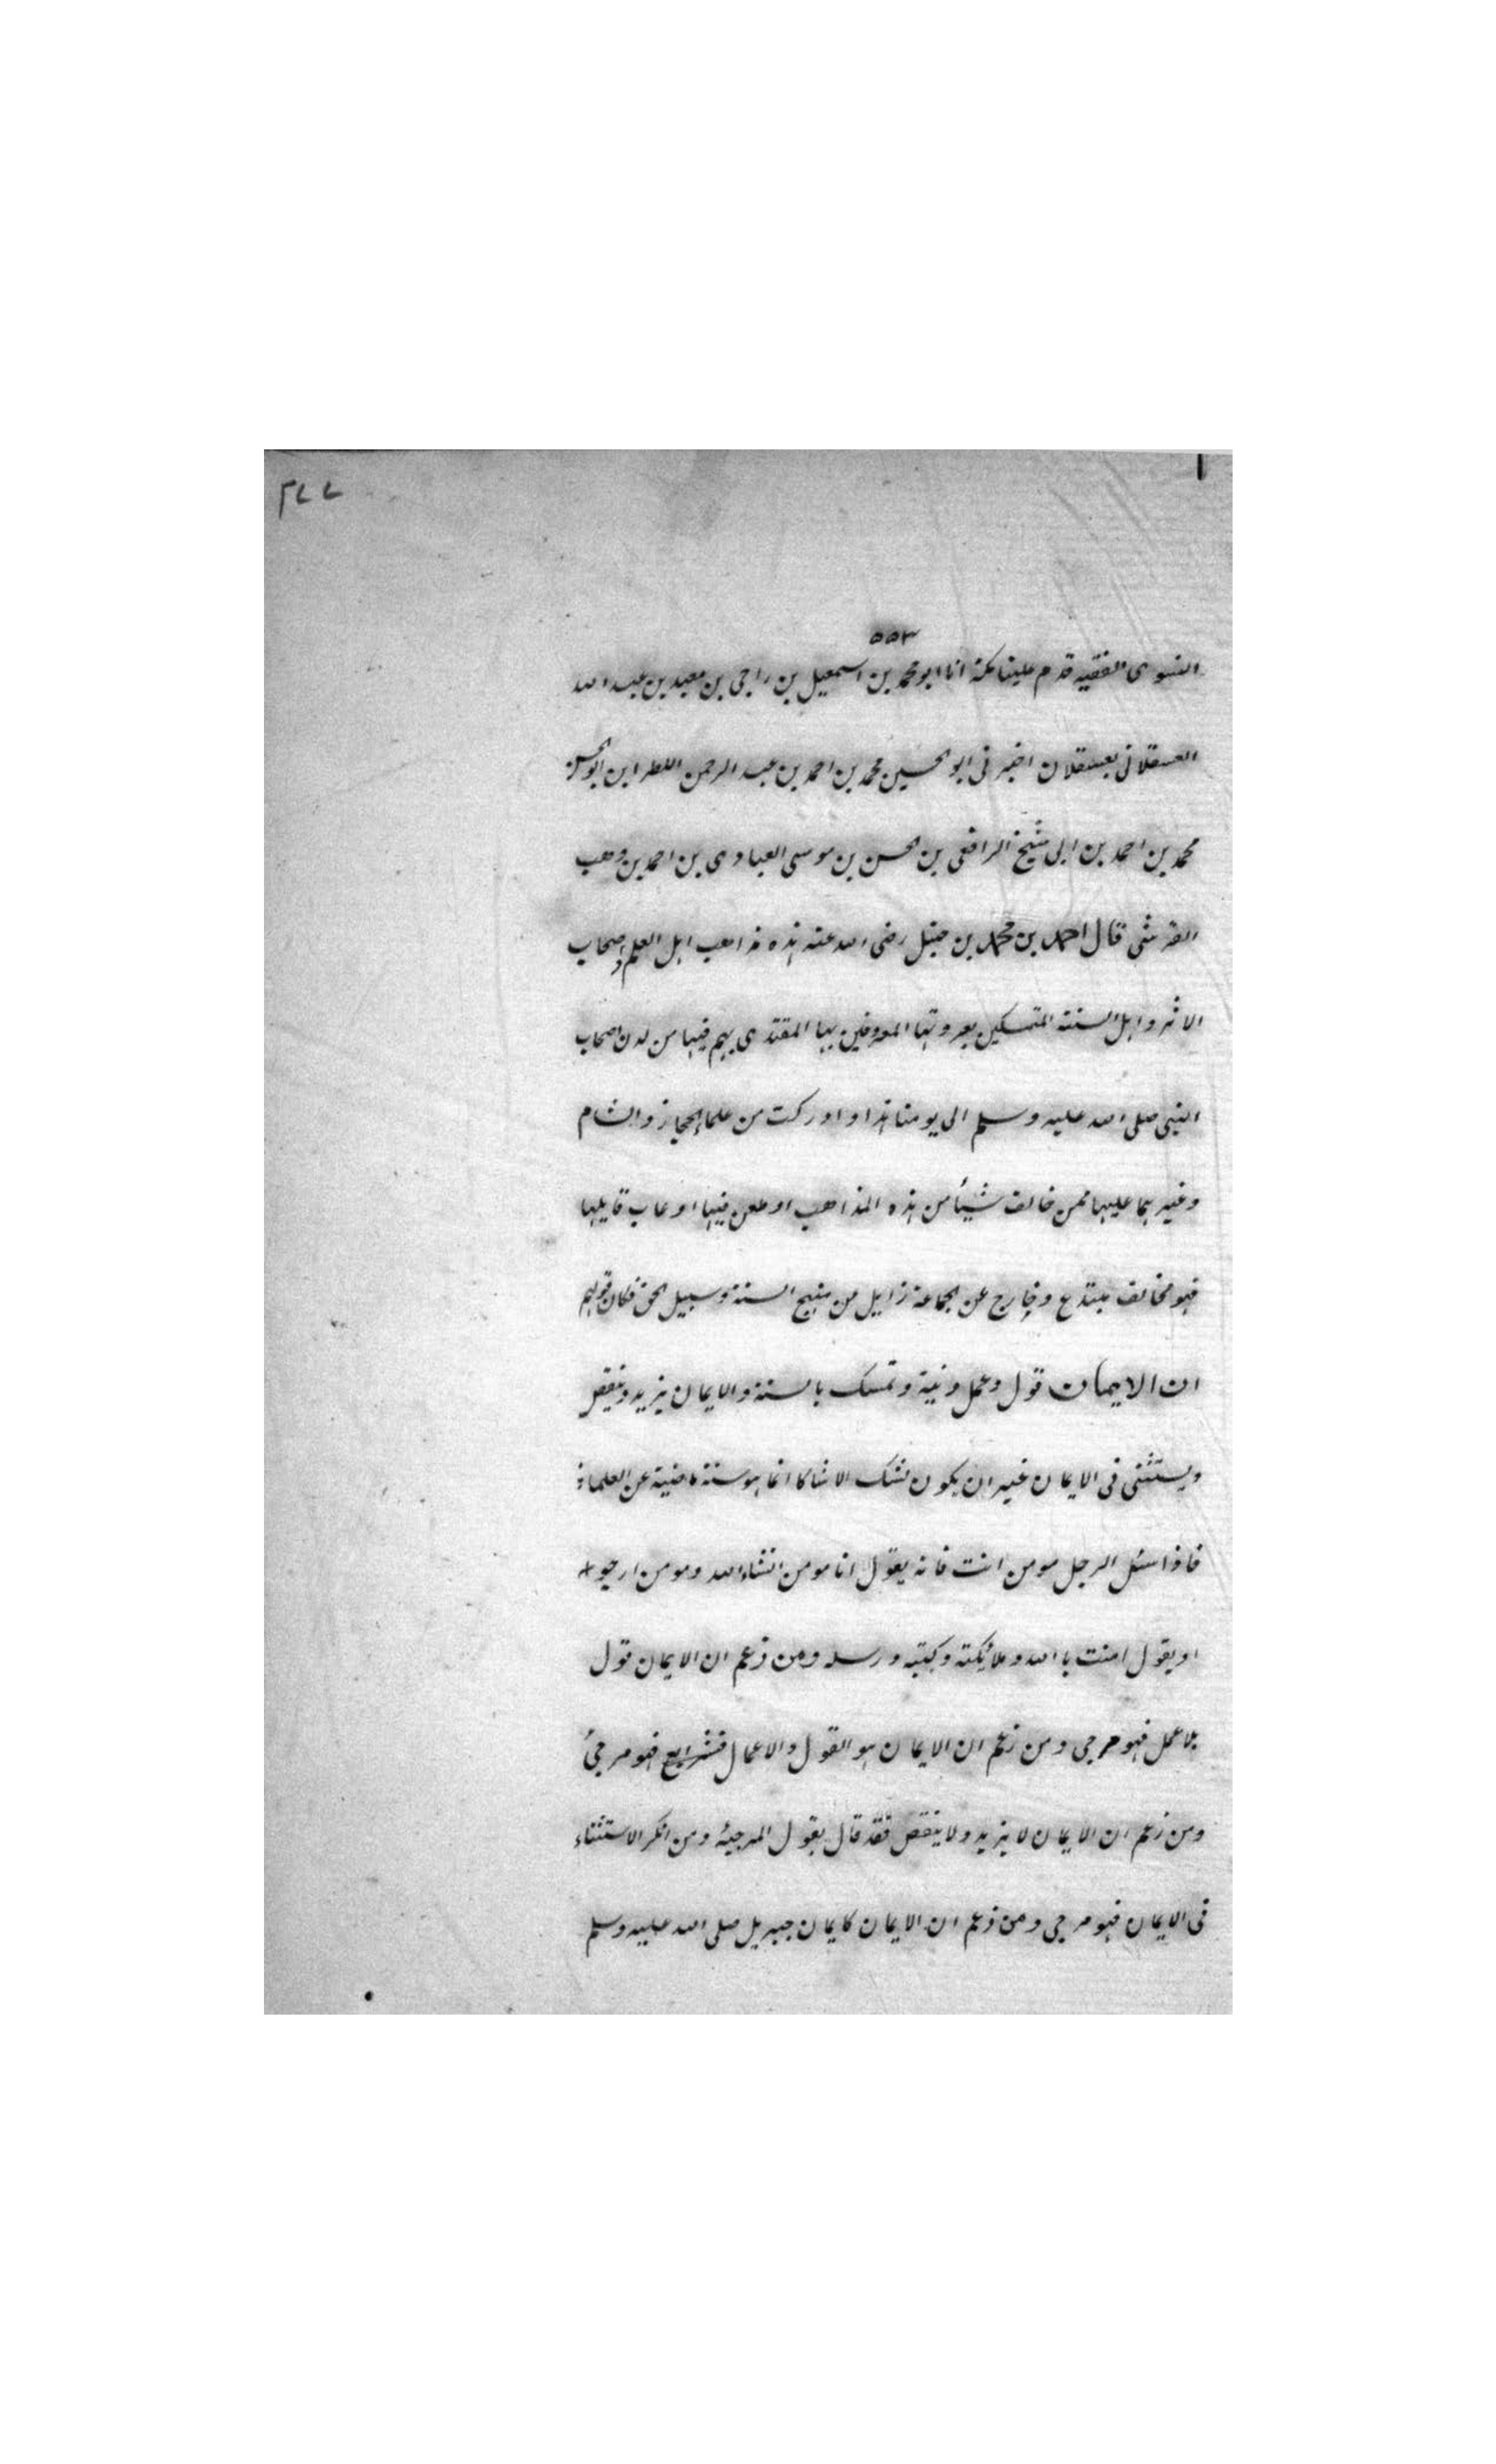 ٢٧٧
٥٥٣
النسوى الفقيه قدم علينا مكة انا ابو محمد بن اسمعيل بن راجى بن معبد بن عبد الله
العسقلانى بعسقلان اخبرنى ابو الحسين محمد بن احمد بن عبد الرحمن الملطر ابن ابو الحسن
محمد بن احمد بن ابى شيخ الرافعى بن الحسن بن موسى العبادى بن احمد بن وهب
القرشى قال احمد بن محمد بن حنبل رضى الله عنه هذه مذاهب اهل العلم واصحاب
الاثر واهل السنة المتمسكين بعروتها المعروفين بها المقتدى بهم فيها من لدن اصحاب
النبى صلى الله عليه وسلم الى يومنا هذا وادركت من علماء الحجاز والشام
وغيرهما عليها فمن خالف شيئاً من هذه المذاهب او طعن فيها او عاب قايلها
فهو مخالف مبتدع وخارج عن الجماعة زايل من منهج السنة وسبيل الحق فكان قولهم
ان الايمان قول وعمل ونية وتمسك بالسنة والايمان يزيد وينقص
ويستثنى فى الايمان غير ان يكون نشك الاشاكا انما هو سنة ماضية عن العلماء
فاذا سئل الرجل مومن انت فانه يقول انا مومن انشاء الله ومومن ارجيو
او يقول امنت باالله وملائكته وكتبه ورسله ومن زعم ان الايمان قول
بلا عمل فهو مرجى ومن زعم ان الايمان هو القول والاعمال فشرايع فهو مرجئ
ومن زعم ان الايمان لا يزيد ولا ينقص فقد قال بقول المرجية ومن انكر الاستثناء
فى الايمان فهو مرجى ومن زعم ان الايمان كايمان جبريل صلى الله عليه وسلم